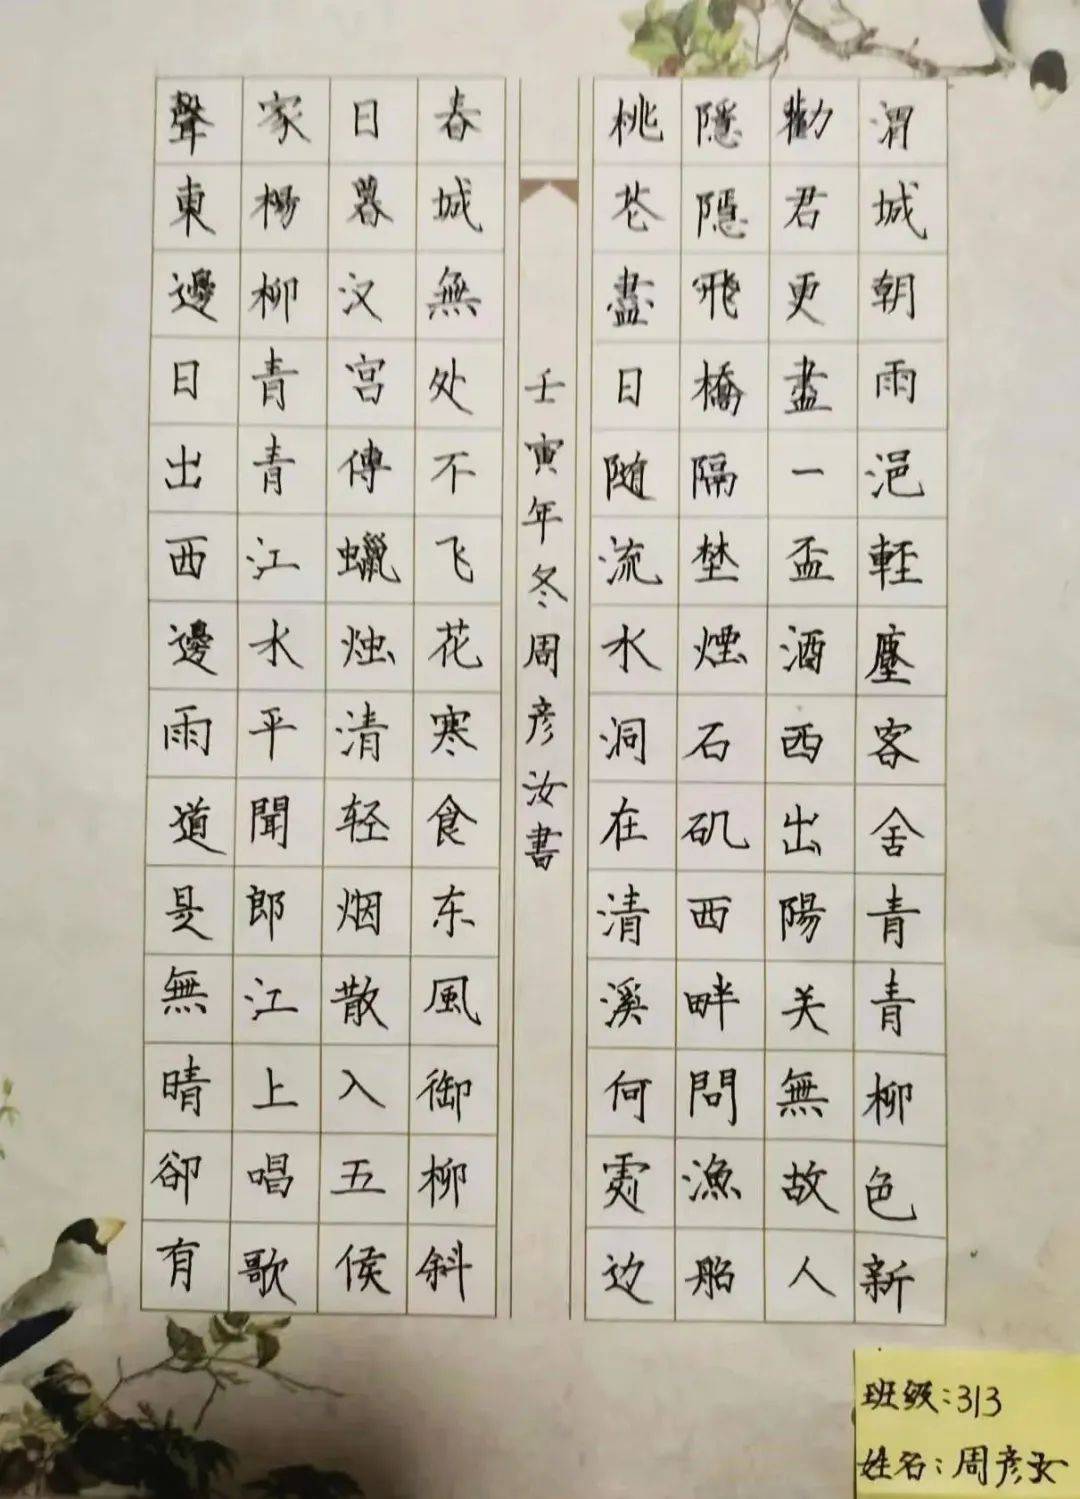 渭城朝雨浥輕塵客舍青青柳色新
勸君更盡一盃酒西出陽关無故人
隱隱飛橋隔埜煙石矶西畔問漁船
桃花盡日随流水洞在清溪何處边
壬寅年冬周彦汝書
春城無处不飞花寒食东風御柳斜
日暮汉宫傳蠟烛清轻烟散入五侯
家楊柳青青江水平聞郎江上唱歌
聲東邊日出西邊雨道是無晴卻有
班级:313
姓名:周彦汝